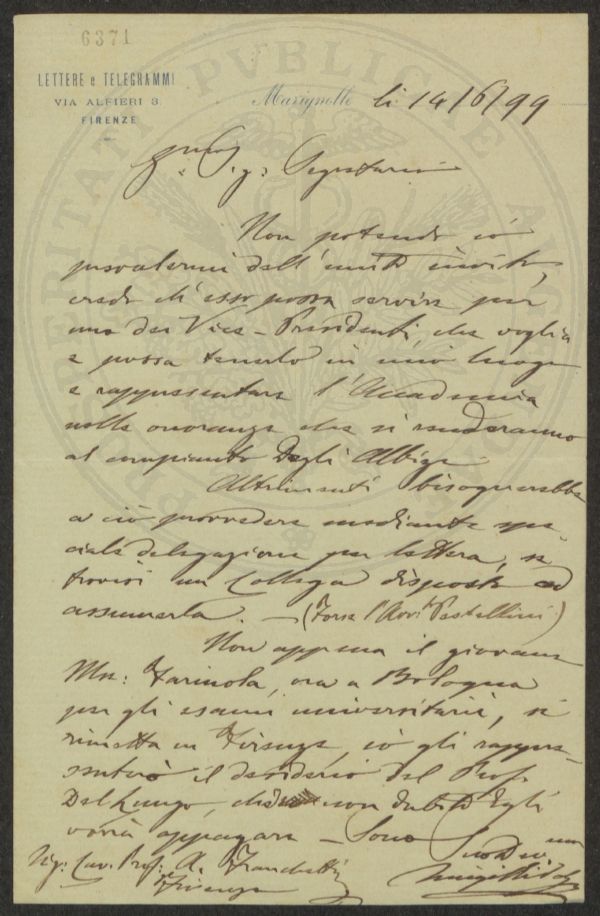 6371
LETTERE e TELEGRAMMI
VIA ALFIERI 3.
FIRENZE
Marignolle li 14/6/99
Sig: Segretario
Non potendo io
prevalermi dell'unito invito,
credo ch'esso possa servire per
uno dei Vice-Presidenti, che voglia
e possa tenerlo in mio luogo
e rappresentare l'Accademia
nelle onoranze che si renderanno
al compianto Degli Albizi
Altrimenti bisognerebbe
a ciò provvedere mediante spe-
ciale delegazione per lettera, se
trovisi un Collega disposto ad
assumerla. — (Forse l'Avv. Pestellini)
Non appena il giovane
Mse: Farinola, ora a Bologna
per gli esami universitari, si
rimetta in Firenze, io gli rappre-
senterò il desiderio del Prof.
Del Lungo, che non dubito Egli
vorrà appagare — Sono
Suo Dev
Sig: Cav. Prof. A. Franchetti
Firenze